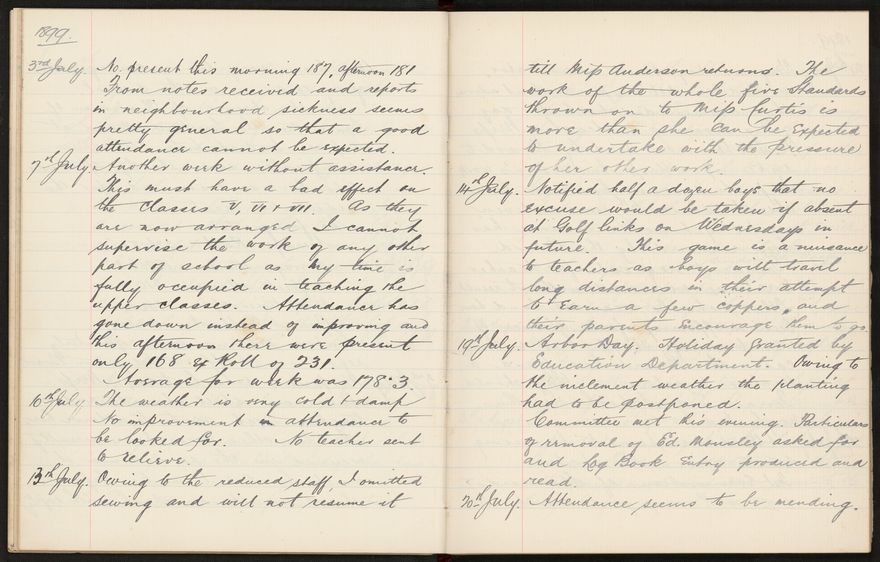 1899.
3rd July. No. present this morning 187, afternoon 181
From notes received and reports
in neighbourhood sickness seems
pretty general so that a good
attendance cannot be expected.
7th July. Another week without assistance.
This must have a bad effect on
the classes V, VI & VII. As they
are now arranged I cannot
supervise the work of any other
part of school as my time is
fully occupied in teaching the
upper classes. Attendance has
gone down instead of improving and
this afternoon there were present
only 168 ex Roll of 231.
Average for week was 178.3.
10th July The weather is very cold & damp
No improvement in attendance to
be looked for. No teacher sent
to relieve.
13th July. Owing to the reduced staff, I omitted
sewing and will not resume it
till Miss Anderson returns. The
work of the whole five Standards
thrown on to Miss Curtis is
more than she can be expected
to undertake with the pressure
of her other work.
14th July. Notified half a dozen boys that no
excuse would be taken if absent
at Golf links on Wednesdays in
future. This game is a nuisance
to teachers as boys will travel
long distances in their attempt
to earn a few coppers, and
their parents encourage them to go.
19th July. Arbor Day. Holiday granted by
Education Department. Owing to
the inclement weather the planting
had to be postponed.
Committee met this evening. Particulars
of removal of Ed. Mousley asked for
and Log Book Entry produced and
read.
20th July. Attendance seems to be mending.